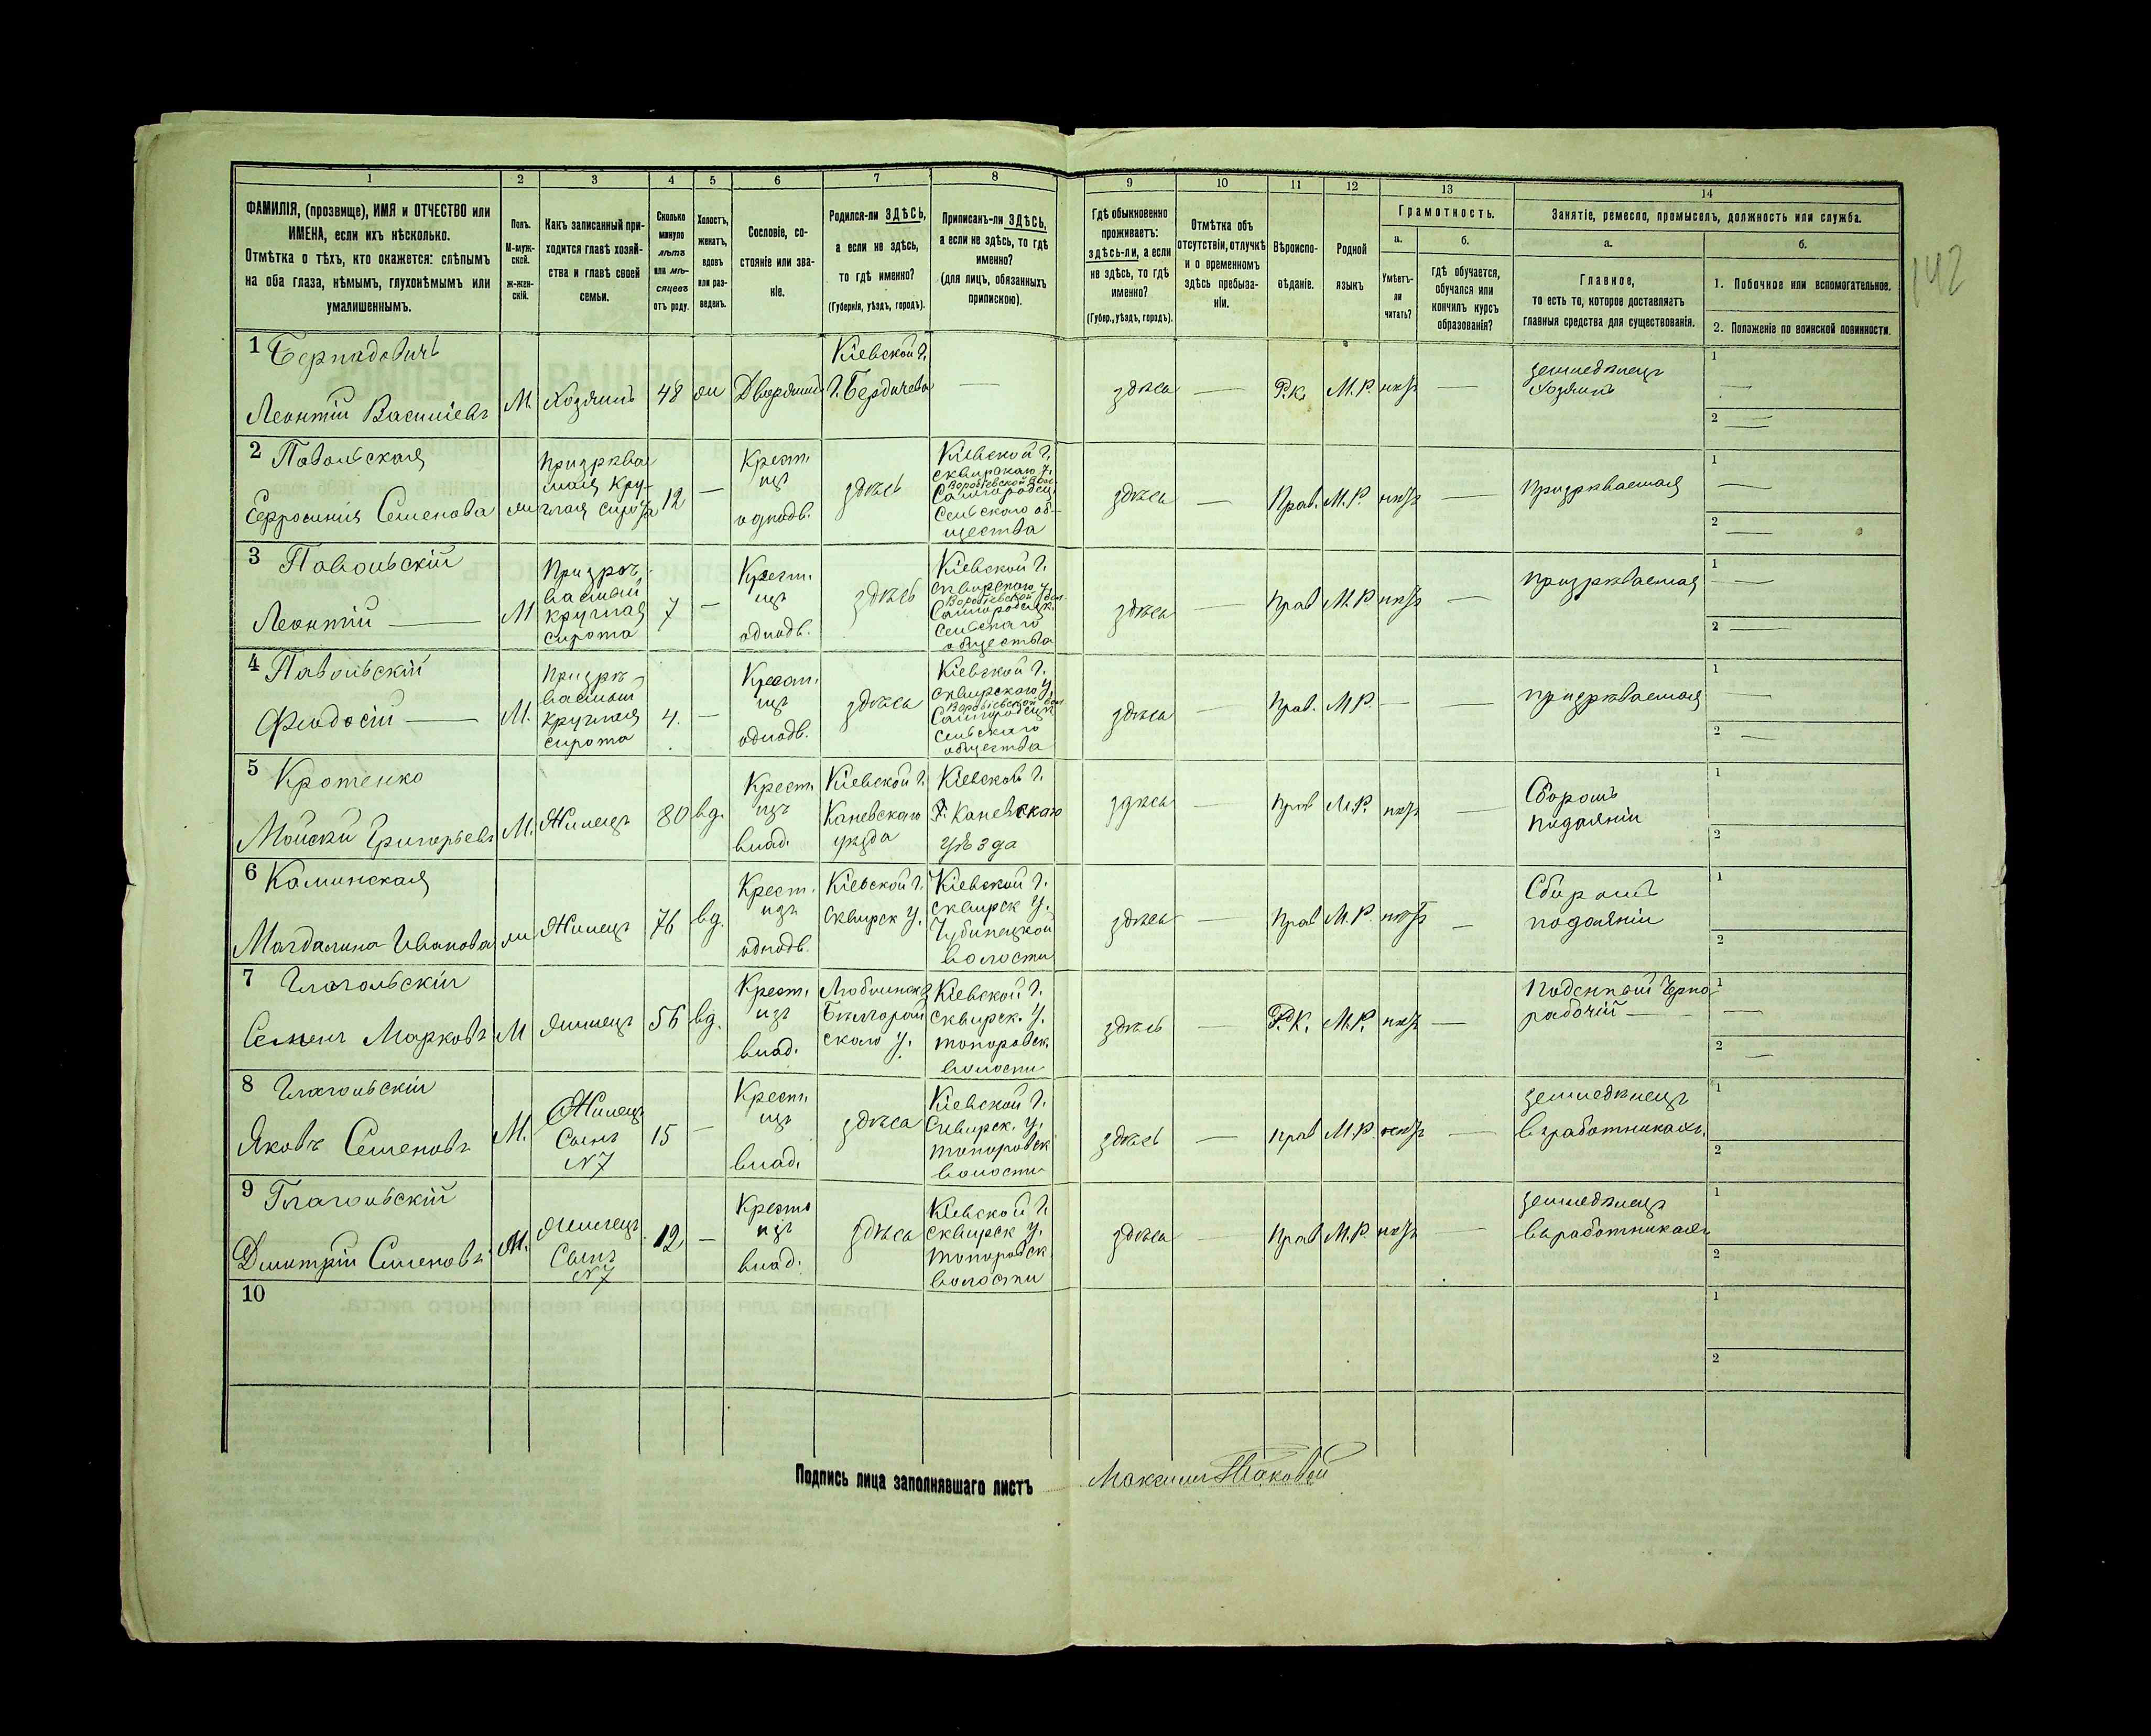 1 2 3 4 5 6 7 8 9 10 11 12 13 14
ФАМИЛІЯ, (прозвище), ИМЯ и ОТЧЕСТВО или
ИМЕНА, если ихъ нѣсколько.
Отмѣтка о тѣхъ, кто окажется: слѣпымъ
на оба глаза, нѣмымъ, глухонѣмымъ или
умалишеннымъ.
Полъ.
М-муж-
ской.
ж-жен-
скій.
Какъ записанный при-
ходится главѣ хозяй-
ства и главѣ своей
семьи.
Сколько
минуло
лѣтъ
или мѣ-
сяцевъ
отъ роду.
Холостъ,
женатъ,
вдовъ
или раз-
веденъ.
Сословіе, со-
стояніе или зва-
ніе.
Родился-ли ЗДѢСЬ,
а если не здѣсь,
то гдѣ именно?
(Губернія, уѣздъ, городъ).
Приписанъ-ли ЗДѢСЬ,
а если не здѣсь, то гдѣ
именно?
(для лицъ, обязанныхъ
припискою).
Гдѣ обыкновенно
проживаетъ:
здѣсь-ли, а если
не здѣсь, то гдѣ
именно?
(Губер., уѣздъ, городъ).
Отмѣтка объ
отсутствіи, отлучкѣ
и о временномъ
здѣсь пребыва-
ніи.
Вѣроиспо-
вѣданіе.
Родной
языкъ
Грамотность.
а.
Умѣетъ-
ли
читать?
б.
гдѣ обучается,
обучался или
кончилъ курсъ
образованія?
Занятіе, ремесло, промыселъ, должность или служба.
а.
Главное,
то есть то, которое доставляетъ
главныя средства для существованія.
б.
1. Побочное или вспомогательное.
2. Положеніе по воинской повинности.
142
1
Леонтій Василіевъ
М.
Хозяинъ
48
Кіевской г.
г. Бердичева
—
здѣсь
—
Р.к.
М.Р.
нѣтъ
—
земледѣлецъ
Хозяинъ
1 —
2 —
2
Семенова
12
—
Крест.
изъ
однодв.
здѣсь
Кіевской г.
сквирскаго у.
Сельского об-
щества
здѣсь
—
Прав.
М.Р.
нѣтъ
—
Призрѣваемая
1 —
2 —
3 Павольскій
Леонтій —
М
круглая
сирота
7
—
Крест.
изъ
однодв.
здѣсь
Кіевской г.
сквирскаго у.
Сельскаго
общества
здѣсь
—
прав
М.Р.
нѣтъ
—
призрѣваемая
1 —
2 —
4 Павольскій
Феодосій —
М.
круглая
сирота
4.
—
Крест.
изъ
однодв.
здѣсь
Кіевской г.
сквирскаго у.
Сельскаго
общества
здѣсь
—
Прав.
М.Р.
—
—
призрѣваемая
1 —
2 —
5 Кротенко
Мойсей Григорьевъ
М.
Жилецъ
80
вд.
Крест.
изъ
влад.
Кіевской г.
Каневскаго
уѣзда
Каневскаго
уѣзда
здѣсь
—
прав
М.Р.
нѣтъ
—
подаянія
1
2
6 Каминская
Магдалина Иванова
Жилецъ
76
вд.
Крест.
изъ
однодв.
Кіевской г.
Сквирск у.
Кіевской г.
сквирск у.
волости
здѣсь
—
прав
М.Р.
нѣтъ
—
1
2
7
Семенъ Марковъ
М
Жилецъ
56
вд.
Крест.
изъ
влад.
Кіевской г.
сквирск. у.
топоровск.
волости
здѣсь
—
Р.К.
М.Р.
нѣтъ
—
Поденный Черно
рабочій —
1 —
2 —
8
Яковъ Семеновъ
М.
Жилецъ
Сынъ
№7
15
—
Крест.
изъ
влад.
здѣсь
Кіевской г.
Сквирск. у.
топоровск
волости
здѣсь
—
прав
М.Р.
нѣтъ
—
земледѣлецъ
въ работникахъ.
1
2
9
Дмитрій Семеновъ
М.
Жилецъ
Сынъ
№7
12
—
Крест.
изъ
влад.
здѣсь
Кіевской г.
сквирск у.
топоровск
волости
здѣсь
—
прав
М.Р.
нѣтъ
—
земледѣлецъ
въ работникахъ
1
2
10
1
2
Подпись лица заполнявшаго листъ